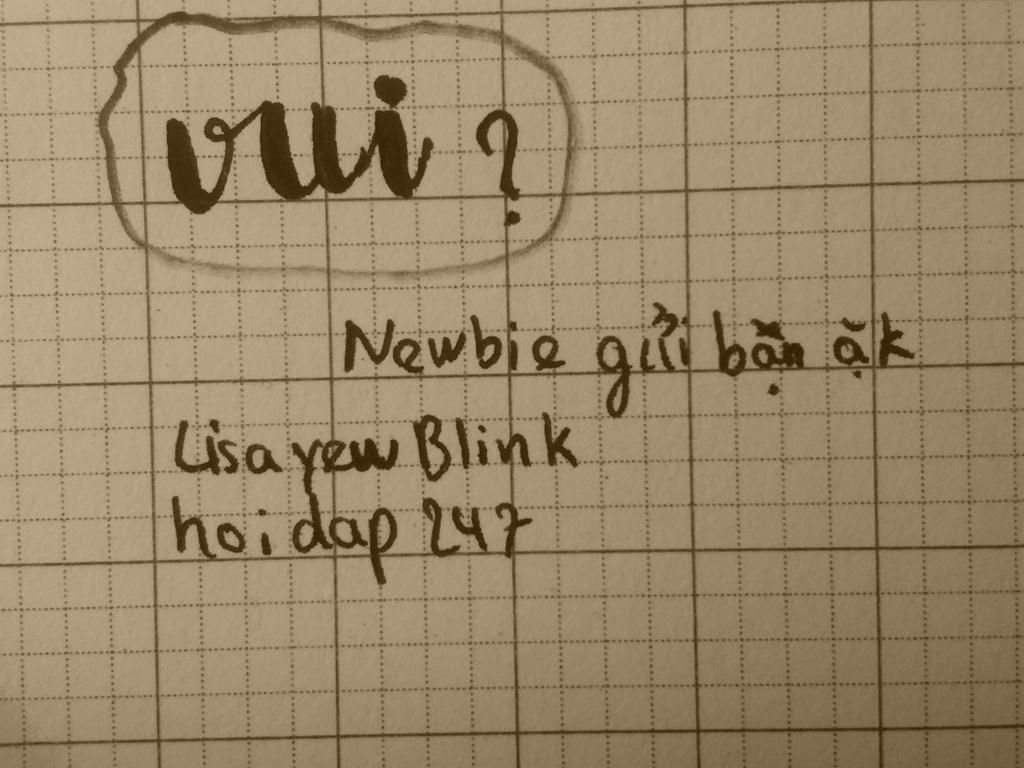 vui ?
Newbie gửi bặn ặk
Lisa yew Blink
hoidap 247